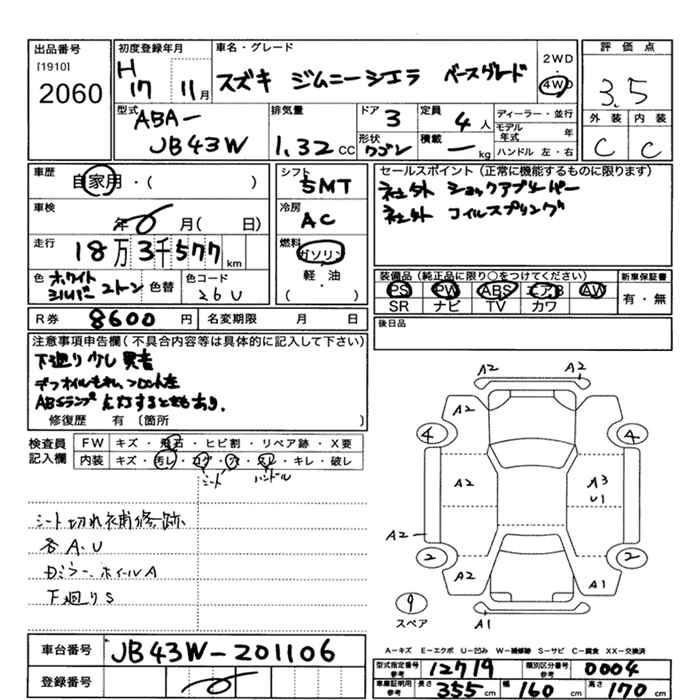 出品番号
[1910]
2060
初度登録年月
H
17 11月
車名・グレード
スズキ ジムニーシエラ ベースグレード
2WD
・
4WD
評価点
3.5
外装 内装
C C
型式
ABA-
JB43W
排気量
1.32 CC
ドア 3
形状
ワゴン
定員 4 人
積載 — kg
ディーラー・並行
モデル
年式 年
ハンドル 左・右
車歴
自家用・( )
車検
年 月( 日)
走行
18万3千577 km
色 ホワイト
シルバー 2トン
色替
色コード
26U
シフト
5MT
冷房
AC
燃料
ガソリン
・
軽・油
( )
セールスポイント(正常に機能するものに限ります)
社外 ショックアブソーバー
社外 コイルスプリング
装備品(純正品に限り○をつけてください)
PS PW ABS エアB AW
SR ナビ TV カワ
新車保証書
有・無
後日品
R券 8600 円
名変期限 月 日
注意事項申告欄(不具合内容等は具体的に記入して下さい)
下廻り少し異音
デフオイルもれ、フロント左
ABSランプ点灯するときもあり.
修復歴 有 〔箇所 〕
検査員
記入欄
FW キズ・飛石・ヒビ割・リペア跡・X要
内装 キズ・汚レ・コゲ・穴・スレ・キレ・破レ
シート ハンドル
シート切れ補修跡
各A.U
Dミラー、ホイールA
下廻りS
車台番号 JB43W-201106
登録番号
A2 A2
4 4
A2 A3
U1
A2
2 2
A2 A1
A1
9
スペア
A-キズ E-エクボ U-凹み W-補修跡 S-サビ C-腐食 XX-交換済
型式指定番号
参考 12719
類別区分番号
参考 0004
車庫証明用
参考 長さ 355 cm 幅 160 cm 高さ 170 cm